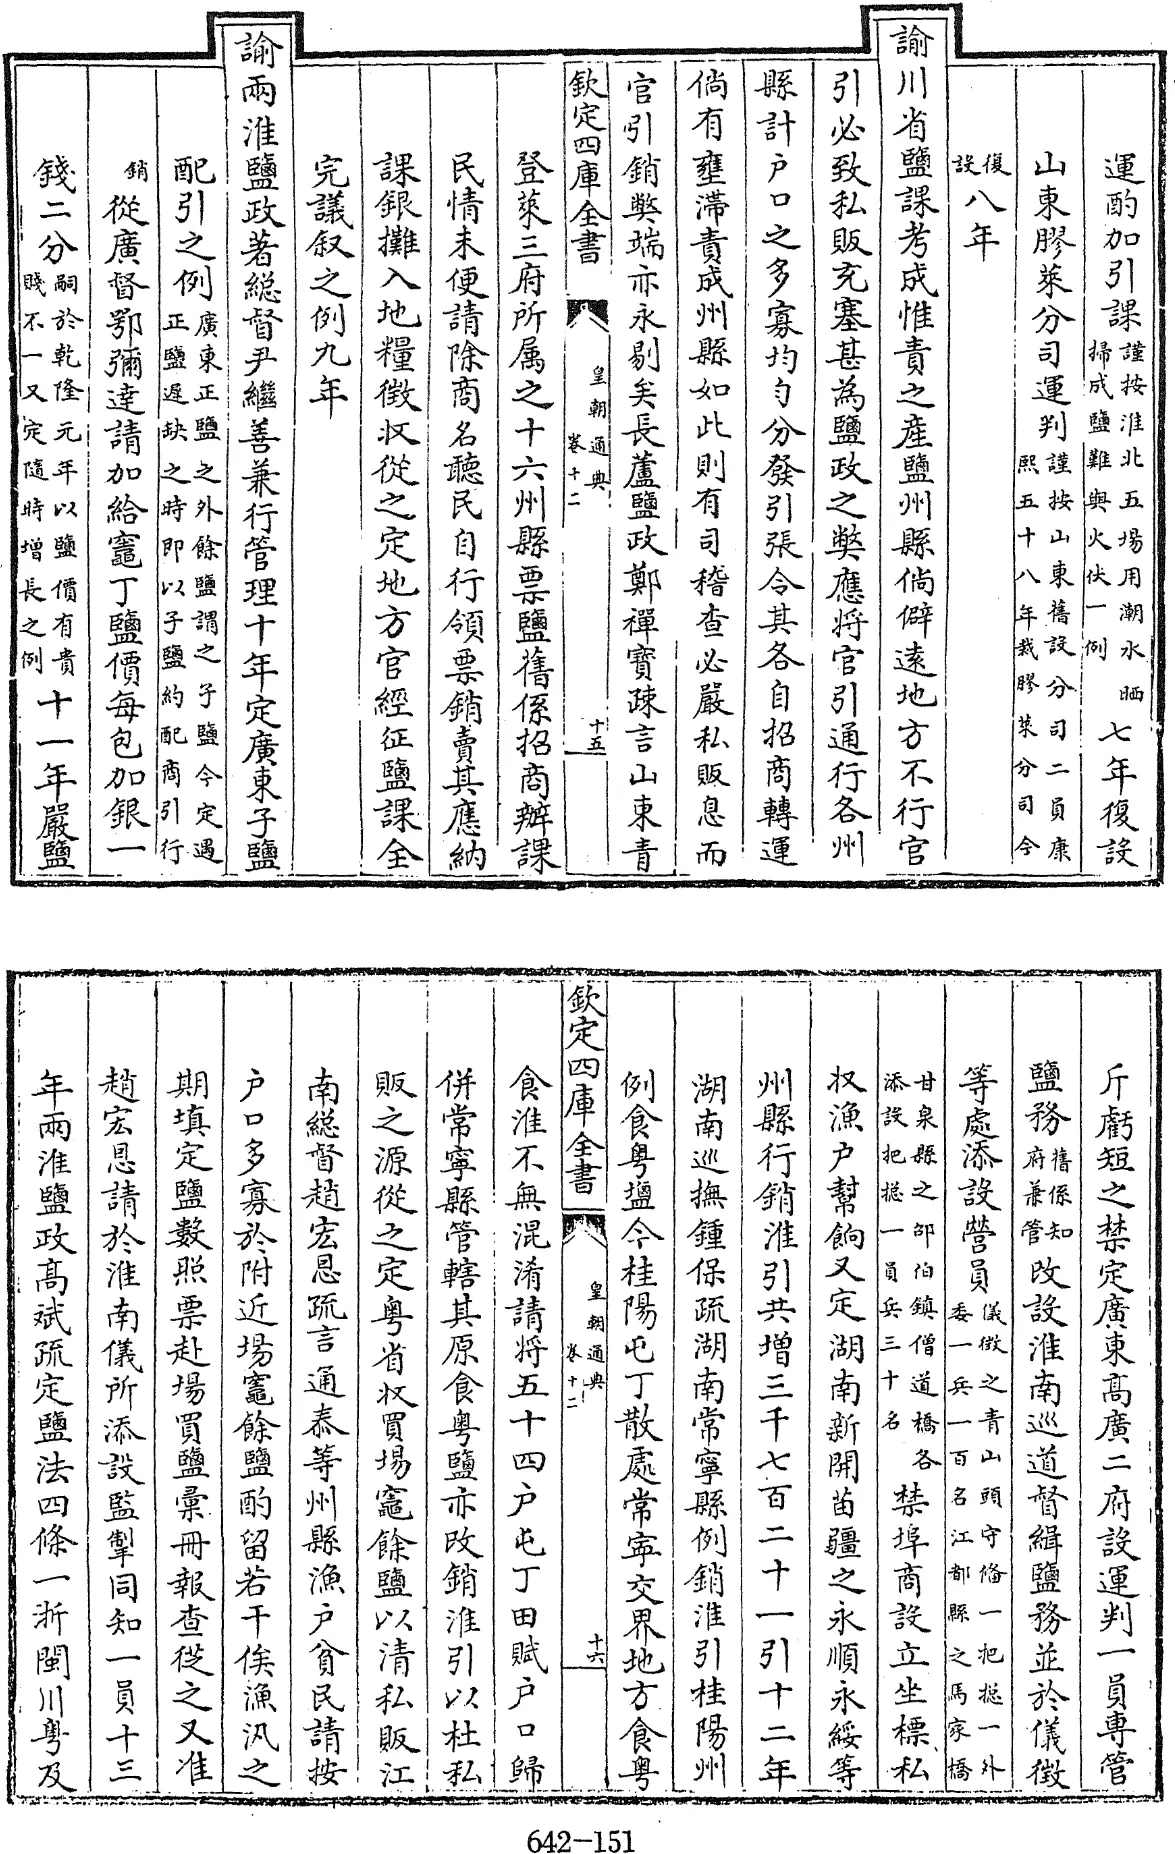 運酌加引課謹按淮北五場用潮水晒掃成鹽難與火伏一例七年復設
山東膠萊分司運判謹按山東舊設分司二員康熙五十八年裁膠萊分司今
復設八年
諭川省鹽課考成惟責之產鹽州縣倘僻遠地方不行官
引必致私販充塞甚為鹽政之獘應將官引通行各州
縣計户口之多寡均勻分發引張令其各自招商轉運
倘有壅滯責成州縣如此則有司稽查必嚴私販息而
官引銷獘端亦永剔矣長蘆鹽政鄭禪寶疎言山東青
欽定四庫全書 皇朝通典 卷十二 十五
登萊三府所属之十六州縣票鹽舊係招商辦課
民情未便請除商名聽民自行領票銷賣其應納
課銀攤入地糧徵收從之定地方官經征鹽課全
完議叙之例九年
諭兩淮鹽政著総督尹繼善兼行管理十年定廣東子鹽
配引之例廣東正鹽之外餘鹽謂之子鹽今定遇正鹽遲缺之時即以子鹽約配商引行
銷從廣督鄂彌達請加給竈丁鹽價每包加銀一
錢二分嗣於乾隆元年以鹽價有貴賤不一又定隨時增長之例十一年嚴鹽
斤虧短之禁定廣東高廣二府設運判一員專管
鹽務舊係知府兼管改設淮南巡道督緝鹽務並於儀徵
等處添設營員儀徵之青山頭守俻一把摠一外委一兵一百名江都縣之馬家橋
甘泉縣之邵伯鎮僧道橋各添設把摠一員兵三十名禁埠商設立坐標私
收漁户幫餉又定湖南新開苗疆之永順永綏等
州縣行銷淮引共增三千七百二十一引十二年
湖南巡撫鍾保疏湖南常寧縣例銷淮引桂陽州
例食粤塩今桂陽屯丁散處常寧交界地方食粤
欽定四庫全書 皇朝通典 卷十二 十六
食淮不無混淆請將五十四户屯丁田賦户口歸
併常寧縣管轄其原食粤鹽亦改銷淮引以杜私
販之源從之定粤省收買場竈餘鹽以清私販江
南総督趙宏恩疏言通泰等州縣漁户貧民請按
户口多寡於附近場竈餘鹽酌留若干俟漁汛之
期填定鹽數照票赴場買鹽彙冊報查從之又准
趙宏恩請於淮南儀所添設監掣同知一員十三
年兩淮鹽政高斌疏定鹽法四條一浙閩川粤及
642-151